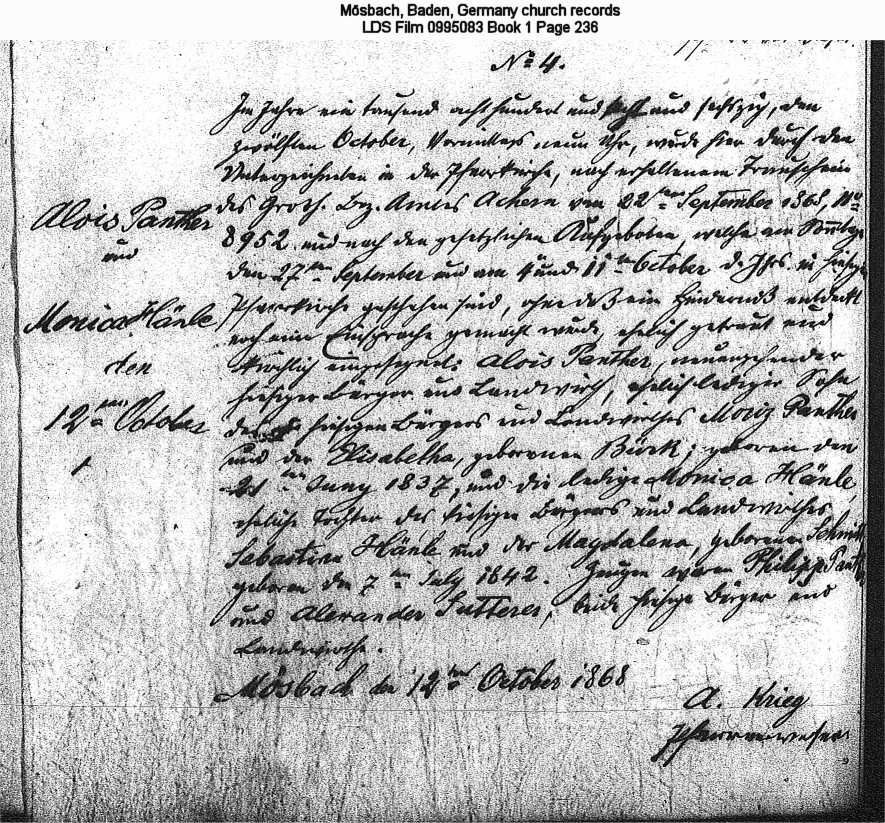 Mösbach, Baden, Germany church records
LDS Film 0995083 Book 1 Page 236
No 4.
Im Jahre ein tausend acht hundert und acht und sechszig, den
zwölften October, Vormittags neun Uhr, wurde hier durch den
Unterzeichneten in der Pfarrkirche, nach erhaltenem Trauschein
des Großh. Bez. Amtes Achern vom 22ten September 1868, No
8952 und nach den gesetzlichen Aufgeboten, welche am Sonntage
den 27ten September und am 4 und 11ten October d. Jhrs. in hiesiger
Pfarrkirche geschehen sind, ohne daß ein Hinderniß entdeckt
noch eine Einsprache gemacht wurde, ehelich getraut und
kirchlich eingesegnet: Alois Panther, neuangehender
hiesiger Bürger und Landwirth, ehelich lediger Sohn
des hiesigen Bürgers und Landwirthes Moriz Panther
und der Elisabetha, gebornen Bürk; geboren den
ten Juny 1837, und die ledige Monica Hänle,
eheliche Tochter des hiesigen Bürgers und Landwirthes
Sebastian Hänle und der Magdalena, gebornen Schmitt
geboren den 7ten July 1842. Zeugen waren Philipp Panth
und Alexander Sutterer, beide hiesige Bürger und
Landwirthe.
Mösbach den 12ten October 1868
A. Krieg
Pfarrverweser
Alois Panther
und
Monica Hänle
den
12ten October